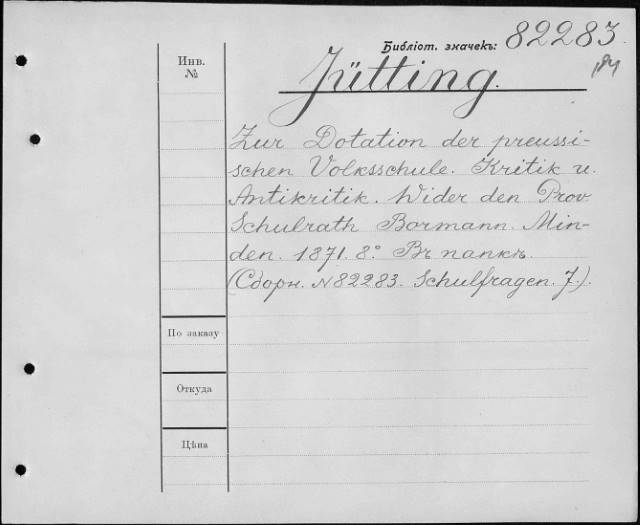 Библіот. значекъ: 82283.
Инв.
№
Jütting.
Zur Dotation der preussi-
schen Volksschule. Kritik u.
Antikritik. Wider den Prov
Schulrath Bormann. Min-
den. 1871. 8°. Въ папкѣ.
(Сборн. N 82283. Schulfragen. 7.).
По заказу
Откуда
Цѣна